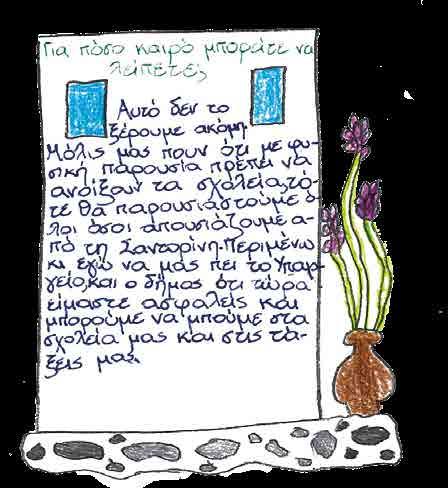 Για πόσο καιρό μπορείτε να
λείπετε;
Αυτό δεν το
ξέρουμε ακόμη.
Μόλις μας πουν ότι με φυ-
σική παρουσία πρέπει να
ανοίξουν τα σχολεία, τό-
τε θα παρουσιαστούμε ό-
λοι όσοι απουσιάζουμε α-
πό τη Σαντορίνη. Περιμένω
κι εγώ να μας πει το Υπουρ-
γείο, και ο δήμος ότι τώρα
είμαστε ασφαλείς και
μπορούμε να μπούμε στα
σχολεία μας και στις τά-
ξεις μας.